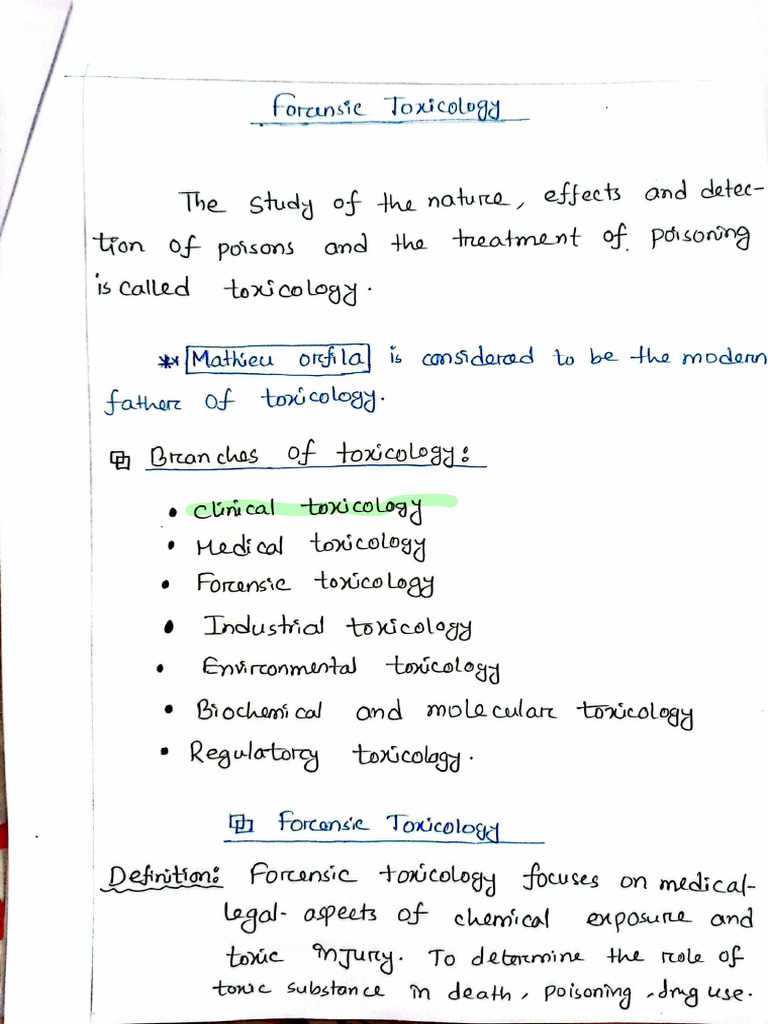 Forensic Toxicology
The study of the nature, effects and detec-
tion of poisons and the treatment of poisoning
is called toxicology.
** Mathieu orfila is considered to be the modern
father of toxicology.
Branches of toxicology:
• Clinical toxicology
• Medical toxicology
• Forensic toxicology
• Industrial toxicology
• Environmental toxicology
• Biochemical and molecular toxicology
• Regulatory toxicology.
Forensic Toxicology
Definition: Forensic toxicology focuses on medical-
legal- aspects of chemical exposure and
toxic injury. To determine the role of
toxic substance in death, poisoning, drug use.